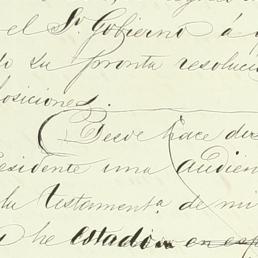 el Sr. Gobierno á
do su pronta resoluci
posiciones.
Desde hace dos
residente una audien
la testamenta. de mi
y he estado en esp